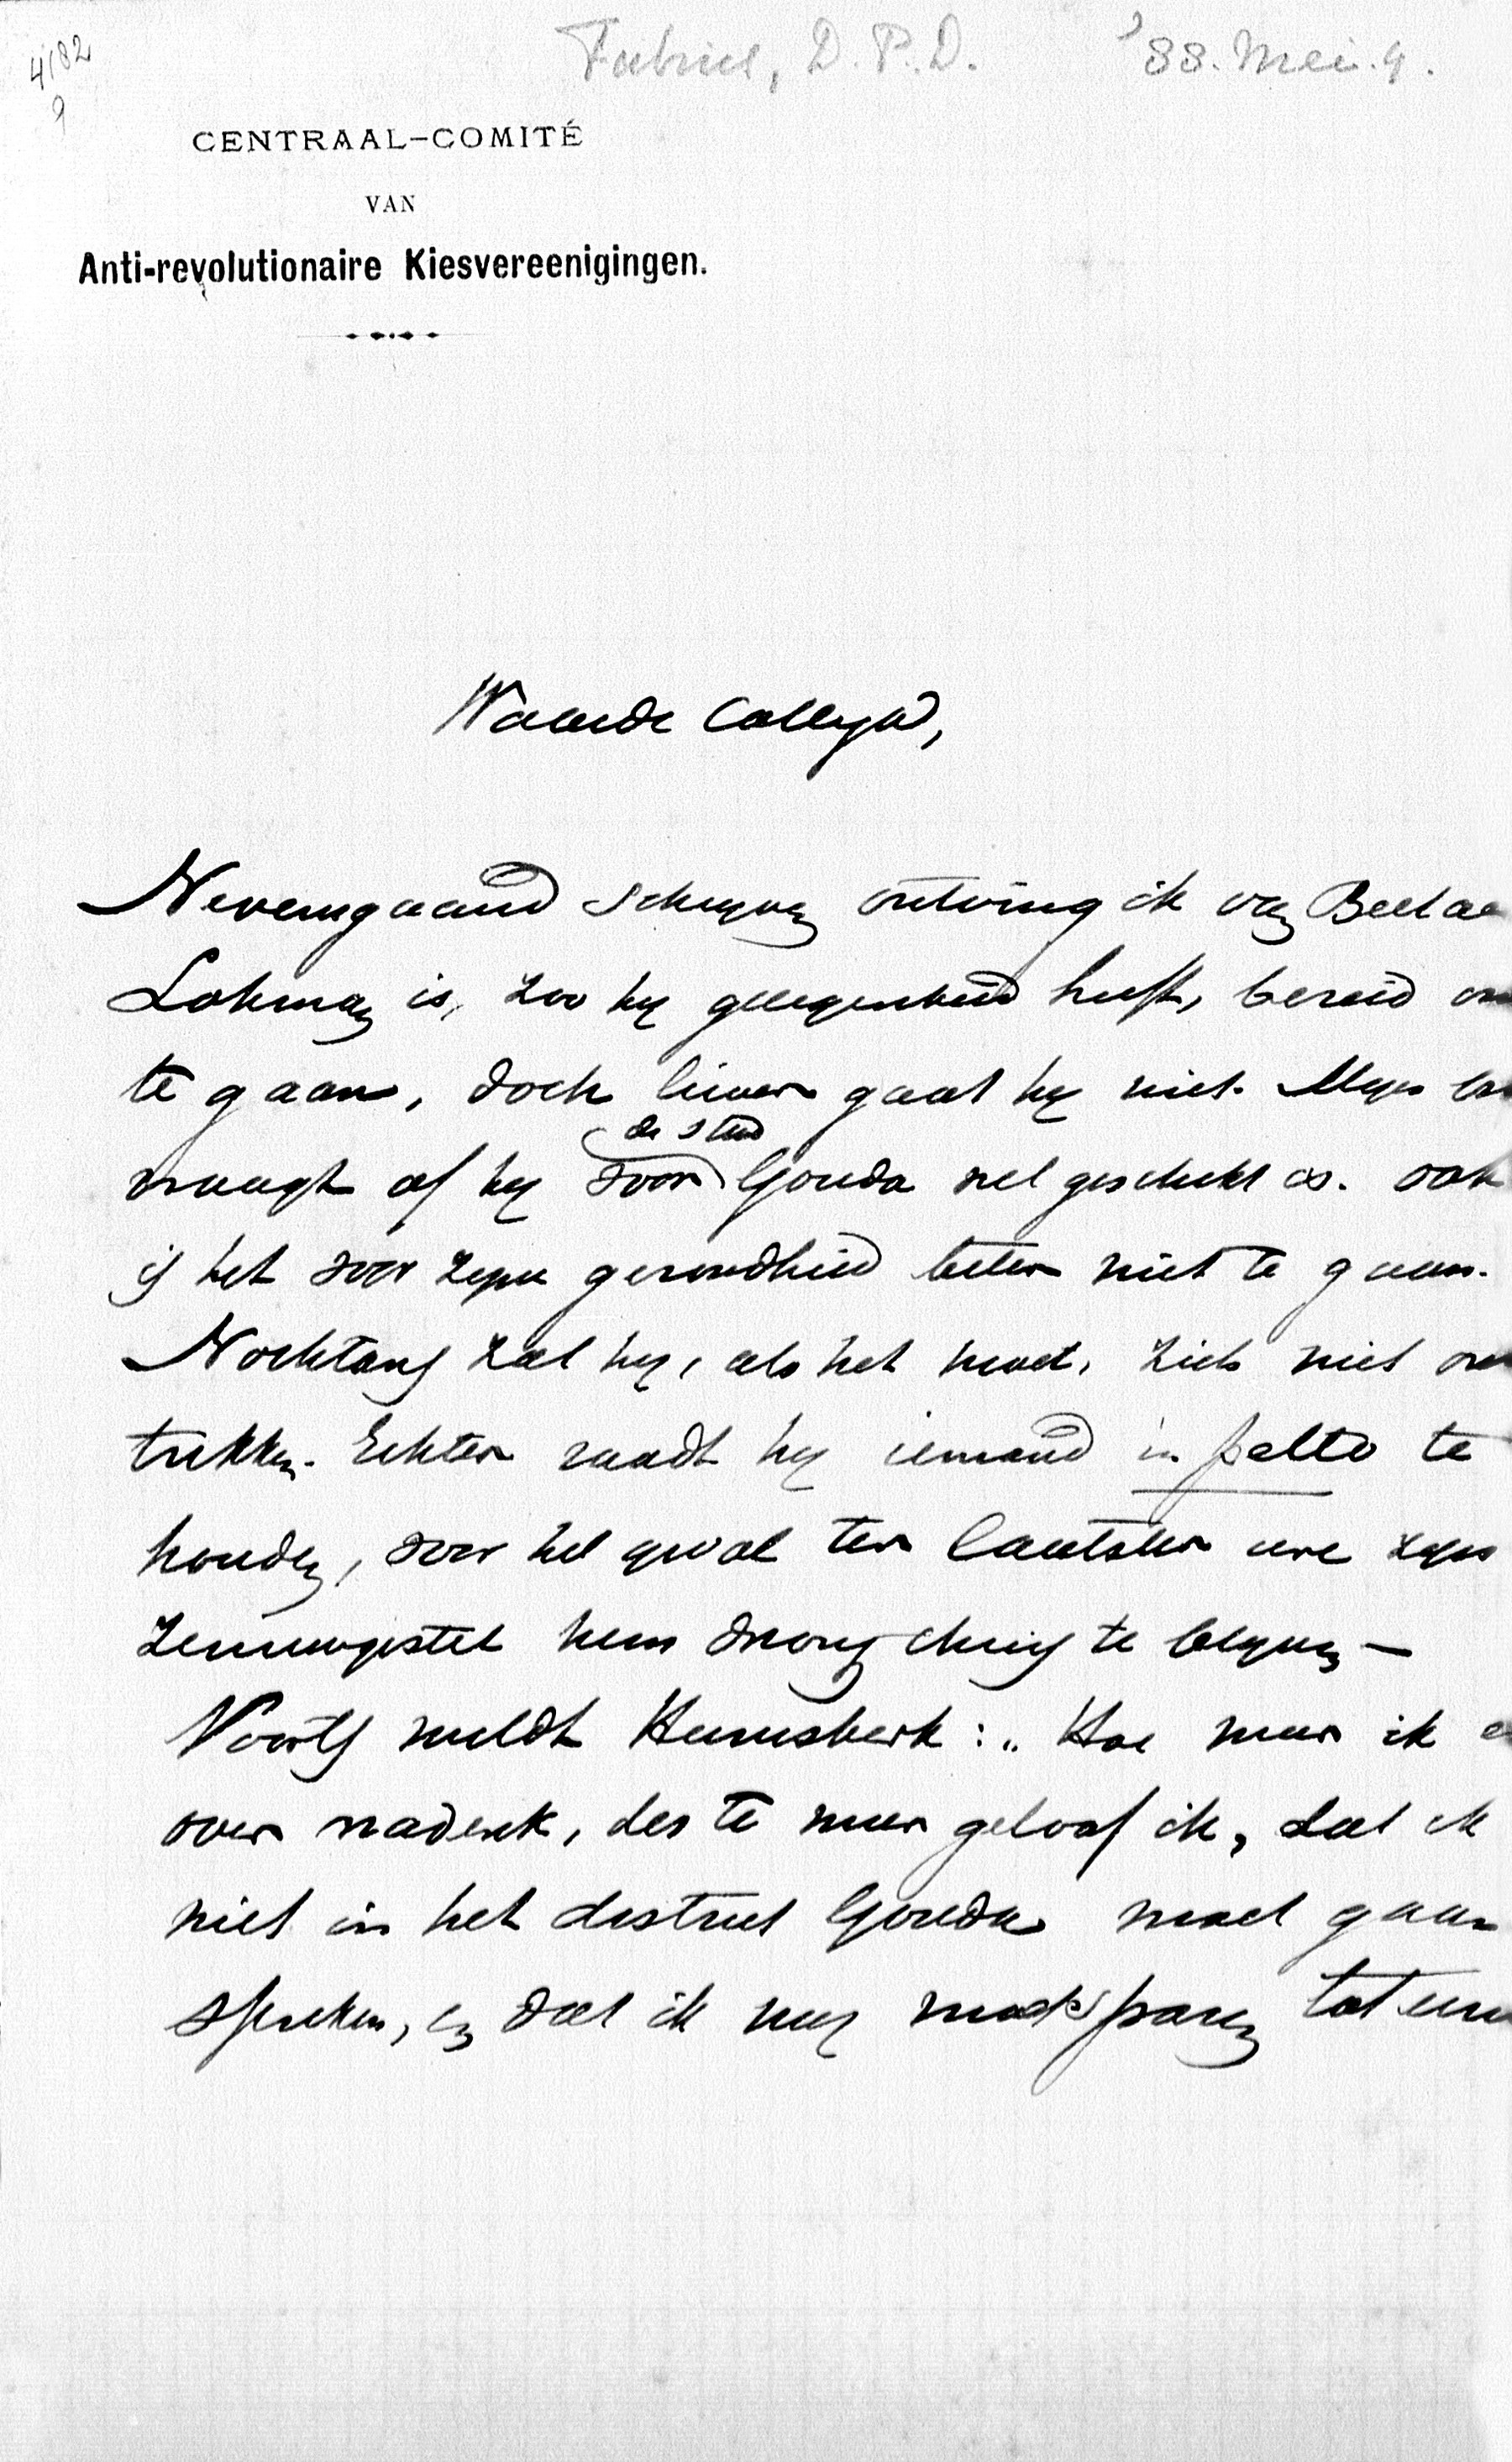 4182
9
Fabius, D. P. D. '88. Mei. 9.
CENTRAAL-COMITÉ
VAN
Anti-revolutionaire Kiesvereenigingen.
Waarde Collega,
Nevensgaand schrijven ontving ik van Beelae
Lohman is, zoo hij gelegenheid heeft, bereid om
te gaan, doch liever gaat hij niet.
de stad
vraagt of hij voor Gouda wel geschikt is. ook
is het voor zijne gezondheid beter niet te gaan.
Nochtans zal hij, als het moet, zich niet ont
trekken. Echter raadt hij iemand in petto te
houden, voor het geval ter laatster ure zijn
zenuwgestel hem drong thuis te blijven –
Voorts meldt Heemskerk: „Hoe meer ik e
over nadenk, des te meer geloof ik, dat ik
niet in het district Gouda moet gaan
spreken, en dat ik mij moet sparen tot een